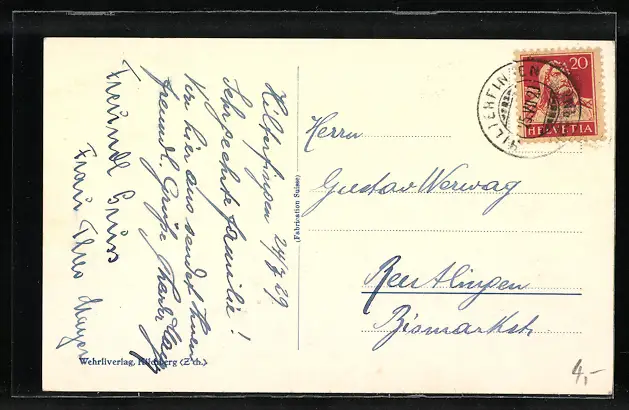 Hilterfingen 24/7 29.
Sehr geehrte Familie!
Von hier aus sendet Ihnen
freundl. Grüße
Freundl Gruss
Frau Theo Mayer
(Fabrication Suisse)
Wehrliverlag, Kilchberg (Zch.)
20
HELVETIA
HILTERFINGEN
Herrn
Gustav Werwag
Reutlingen
Bismarckstr.
4,-